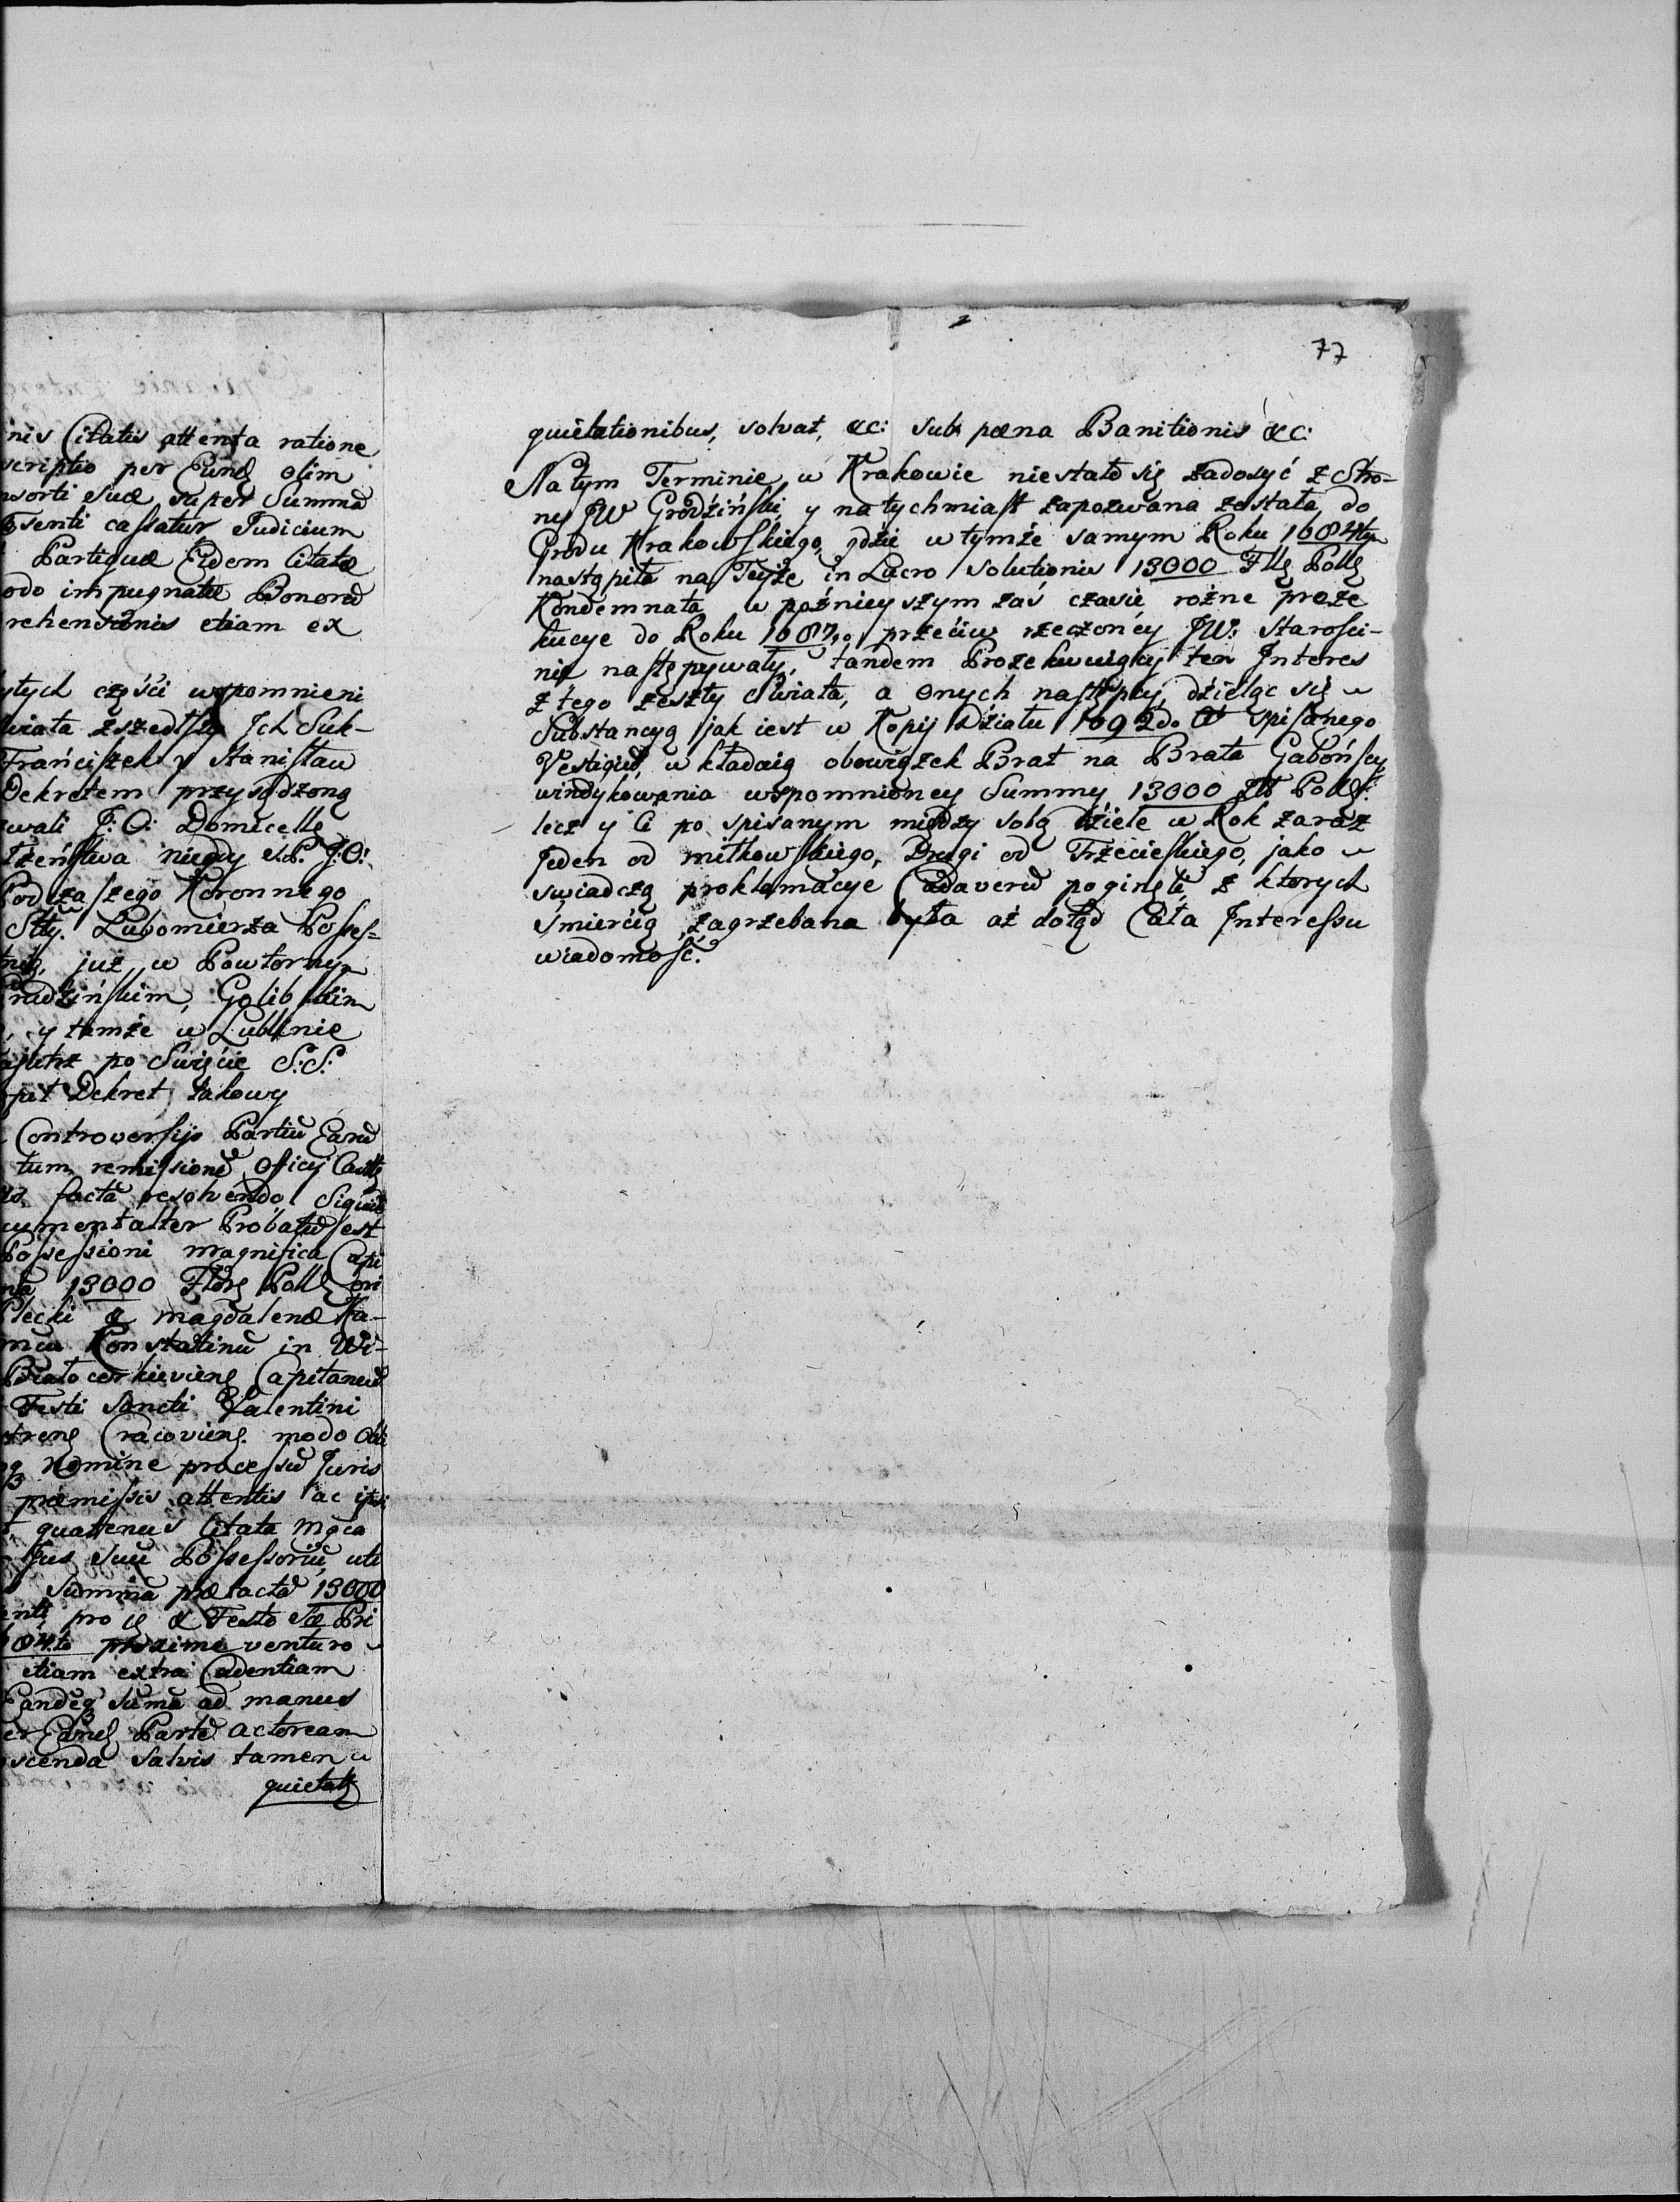 nis Citatis attenta ratione
scriptio per Eund olim
nsorti suæ super Summa
senti cassatur Judicium
Partique Eidem Citatæ
odo impugnatæ Bonoru
rehensionis etiam ex
ytych części wspomnieni
wiata zszedłszy Jch Suk-
Franciszek y Stanisław
Dekretem przysądzoną
zwali J: O: Domicellę
łżeństwa niegdy s.P. J:O:
Podczaszego Koronnego
Stty. Lubomierza Posses=
już w Powtornym
Grudzinskim, Golibskim
, y tamże w Lublinie
po Swięcie S:S:
Dekret takowy
Controversijs Partiu
tum remissione Officij
facta resolvendo Siquid
cumentaliter Probatu est
Possessioni Magnifica Capi
13000 Flor Poll
lecki & Magdalenæ Ka-
Konstatinu in Wi-
Białocerkieviens Capitaneu
Festi Sancti Valentini
Cracoviens. modo
Nomine processu Juris
præmissis attentis ac ipsi
quattenus Citata Mgca
Jus suu Possessoriu uti
Summa prætacta 13000
pro & Festo Pri
84.to proximo venturo
etiam extra Cadentiam
Eandeq Suma ad manus
Parte actoream
scenda Salvis tamen
quietatt
77
quietationibus, solvat, &c: sub pœna Banitionis &c:
Na tym Terminie w Krakowie niestało się zadosyć z Stro-
ny JW Grodzinski, y natychmiast zapozwana została do
Grodu Krakowskiego, gdzie w tymże samym Roku 1684tym
nastąpiła na Teyże in Lucro Solutionis 13000 Flls Polls
Kondemnata, w poźnieyszym zaś czasie rożne proze
kucye do Roku 1687go przeciw rzeczoney JW: Starości-
nie następywały, tandem Prozekwuiący ten Jnteres
z tego zeszły Swiata, a Onych następcy, dzieląc się
Substancyą jak iest w Kopij Działu 1692do Ao spisanego
Vestigiu, wkładaią obowiązek Brat na Brata Gabońscy
windykowania wspomnioney Summy 13000 Złt Polls:
lecz y Ci po spisanym między sobą dziele w Rok zaraz
Jeden od Miłkowskiego, Drugi od Trzecieskiego, jako
swiadczą proklamacye Cadaveru poginęli, z ktorych
smiercią zagrzebana była aż dotąd Cała Jnteressu
wiadomość.